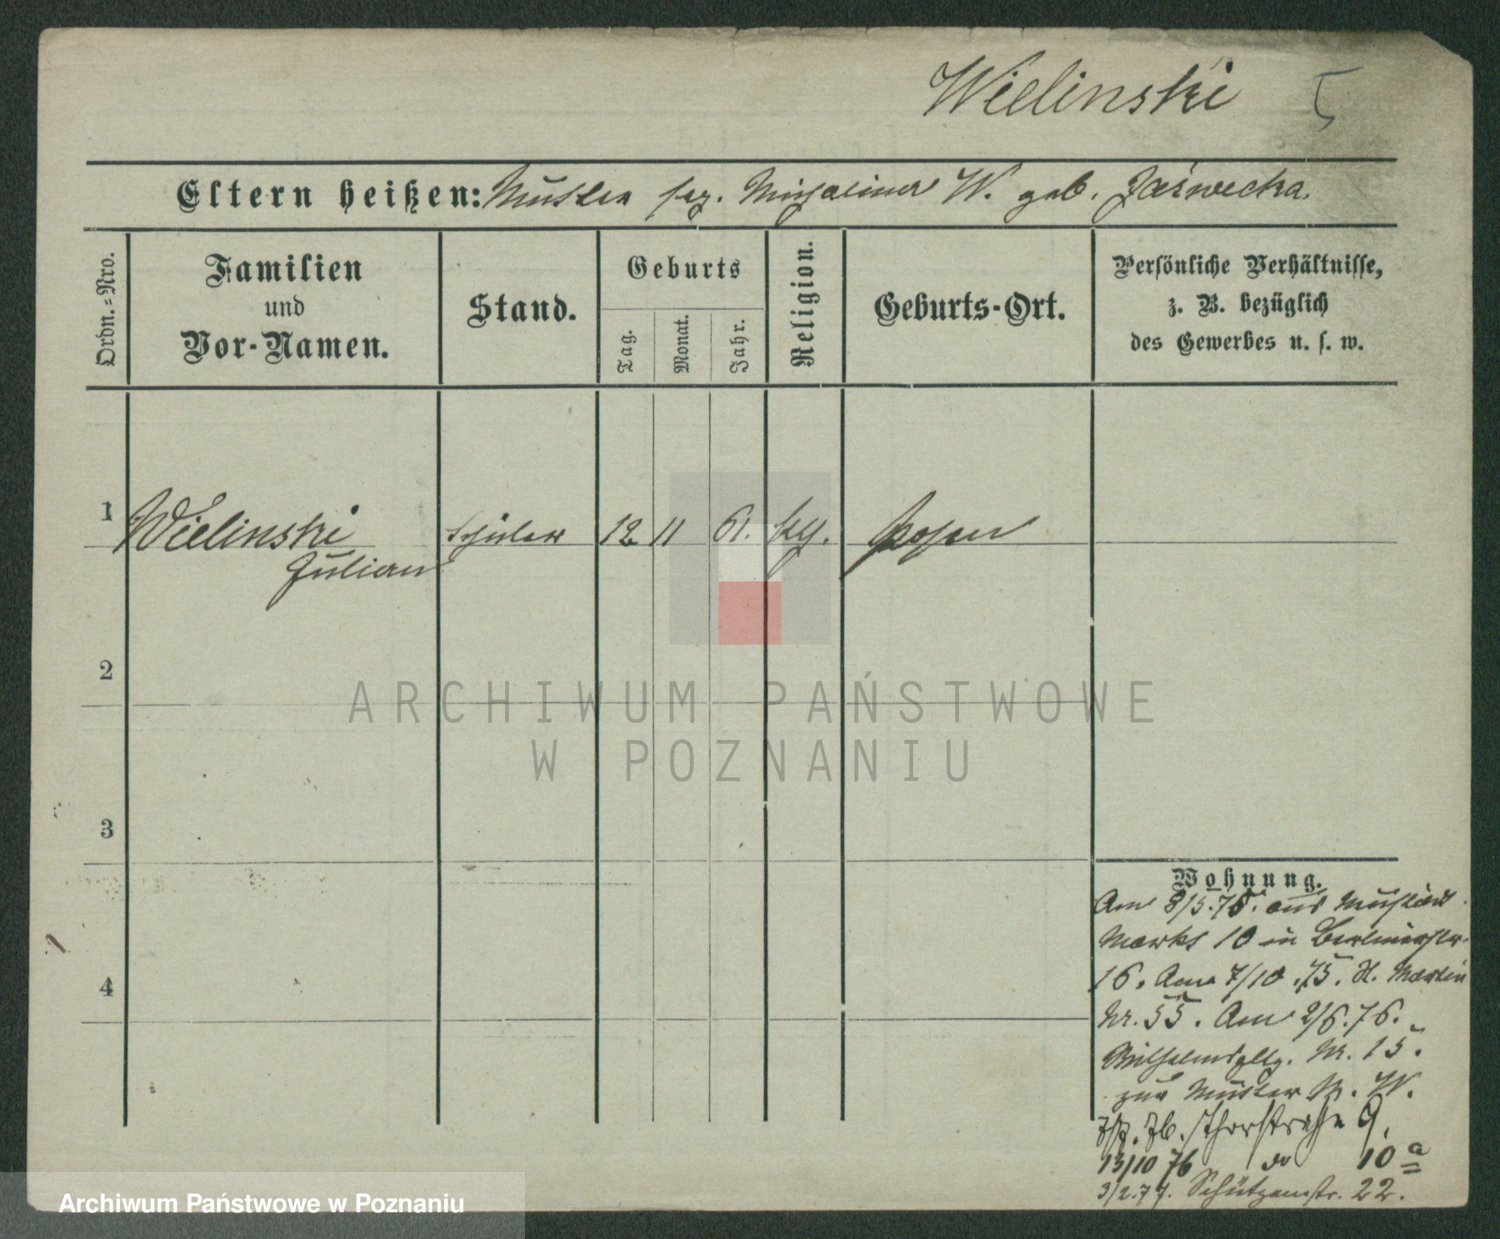 Wielinski 5
Eltern heißen: Mutter sep. Michalina W. geb. Jaswecka.
Ordn.=Nro.
Familien
und
Vor-Namen.
Stand.
Geburts
Tag.
Monat.
Jahr.
Religion.
Geburts-Ort.
Persönliche Verhältnisse,
z. B. bezüglich
des Gewerbes u. s. w.
1 Wielinski Schüler 12 11 61. kth. Posen
Julian
2
ARCHIWUM PAŃSTWOWE
W POZNANIU
3
4
Wohnung.
Am 8/5.75. aus Neustädt.
Markt 10 in Berlinerstr.
16. Am 7/10.75. St. Martin
Nr. 55. Am 2/6.76.
Wilhelmsplatz. Nr. 15.
zur Mutter M. W.
9.
13/10 76 do 10 a
3/2.77. Schützenstr. 22.
Archiwum Państwowe w Poznaniu